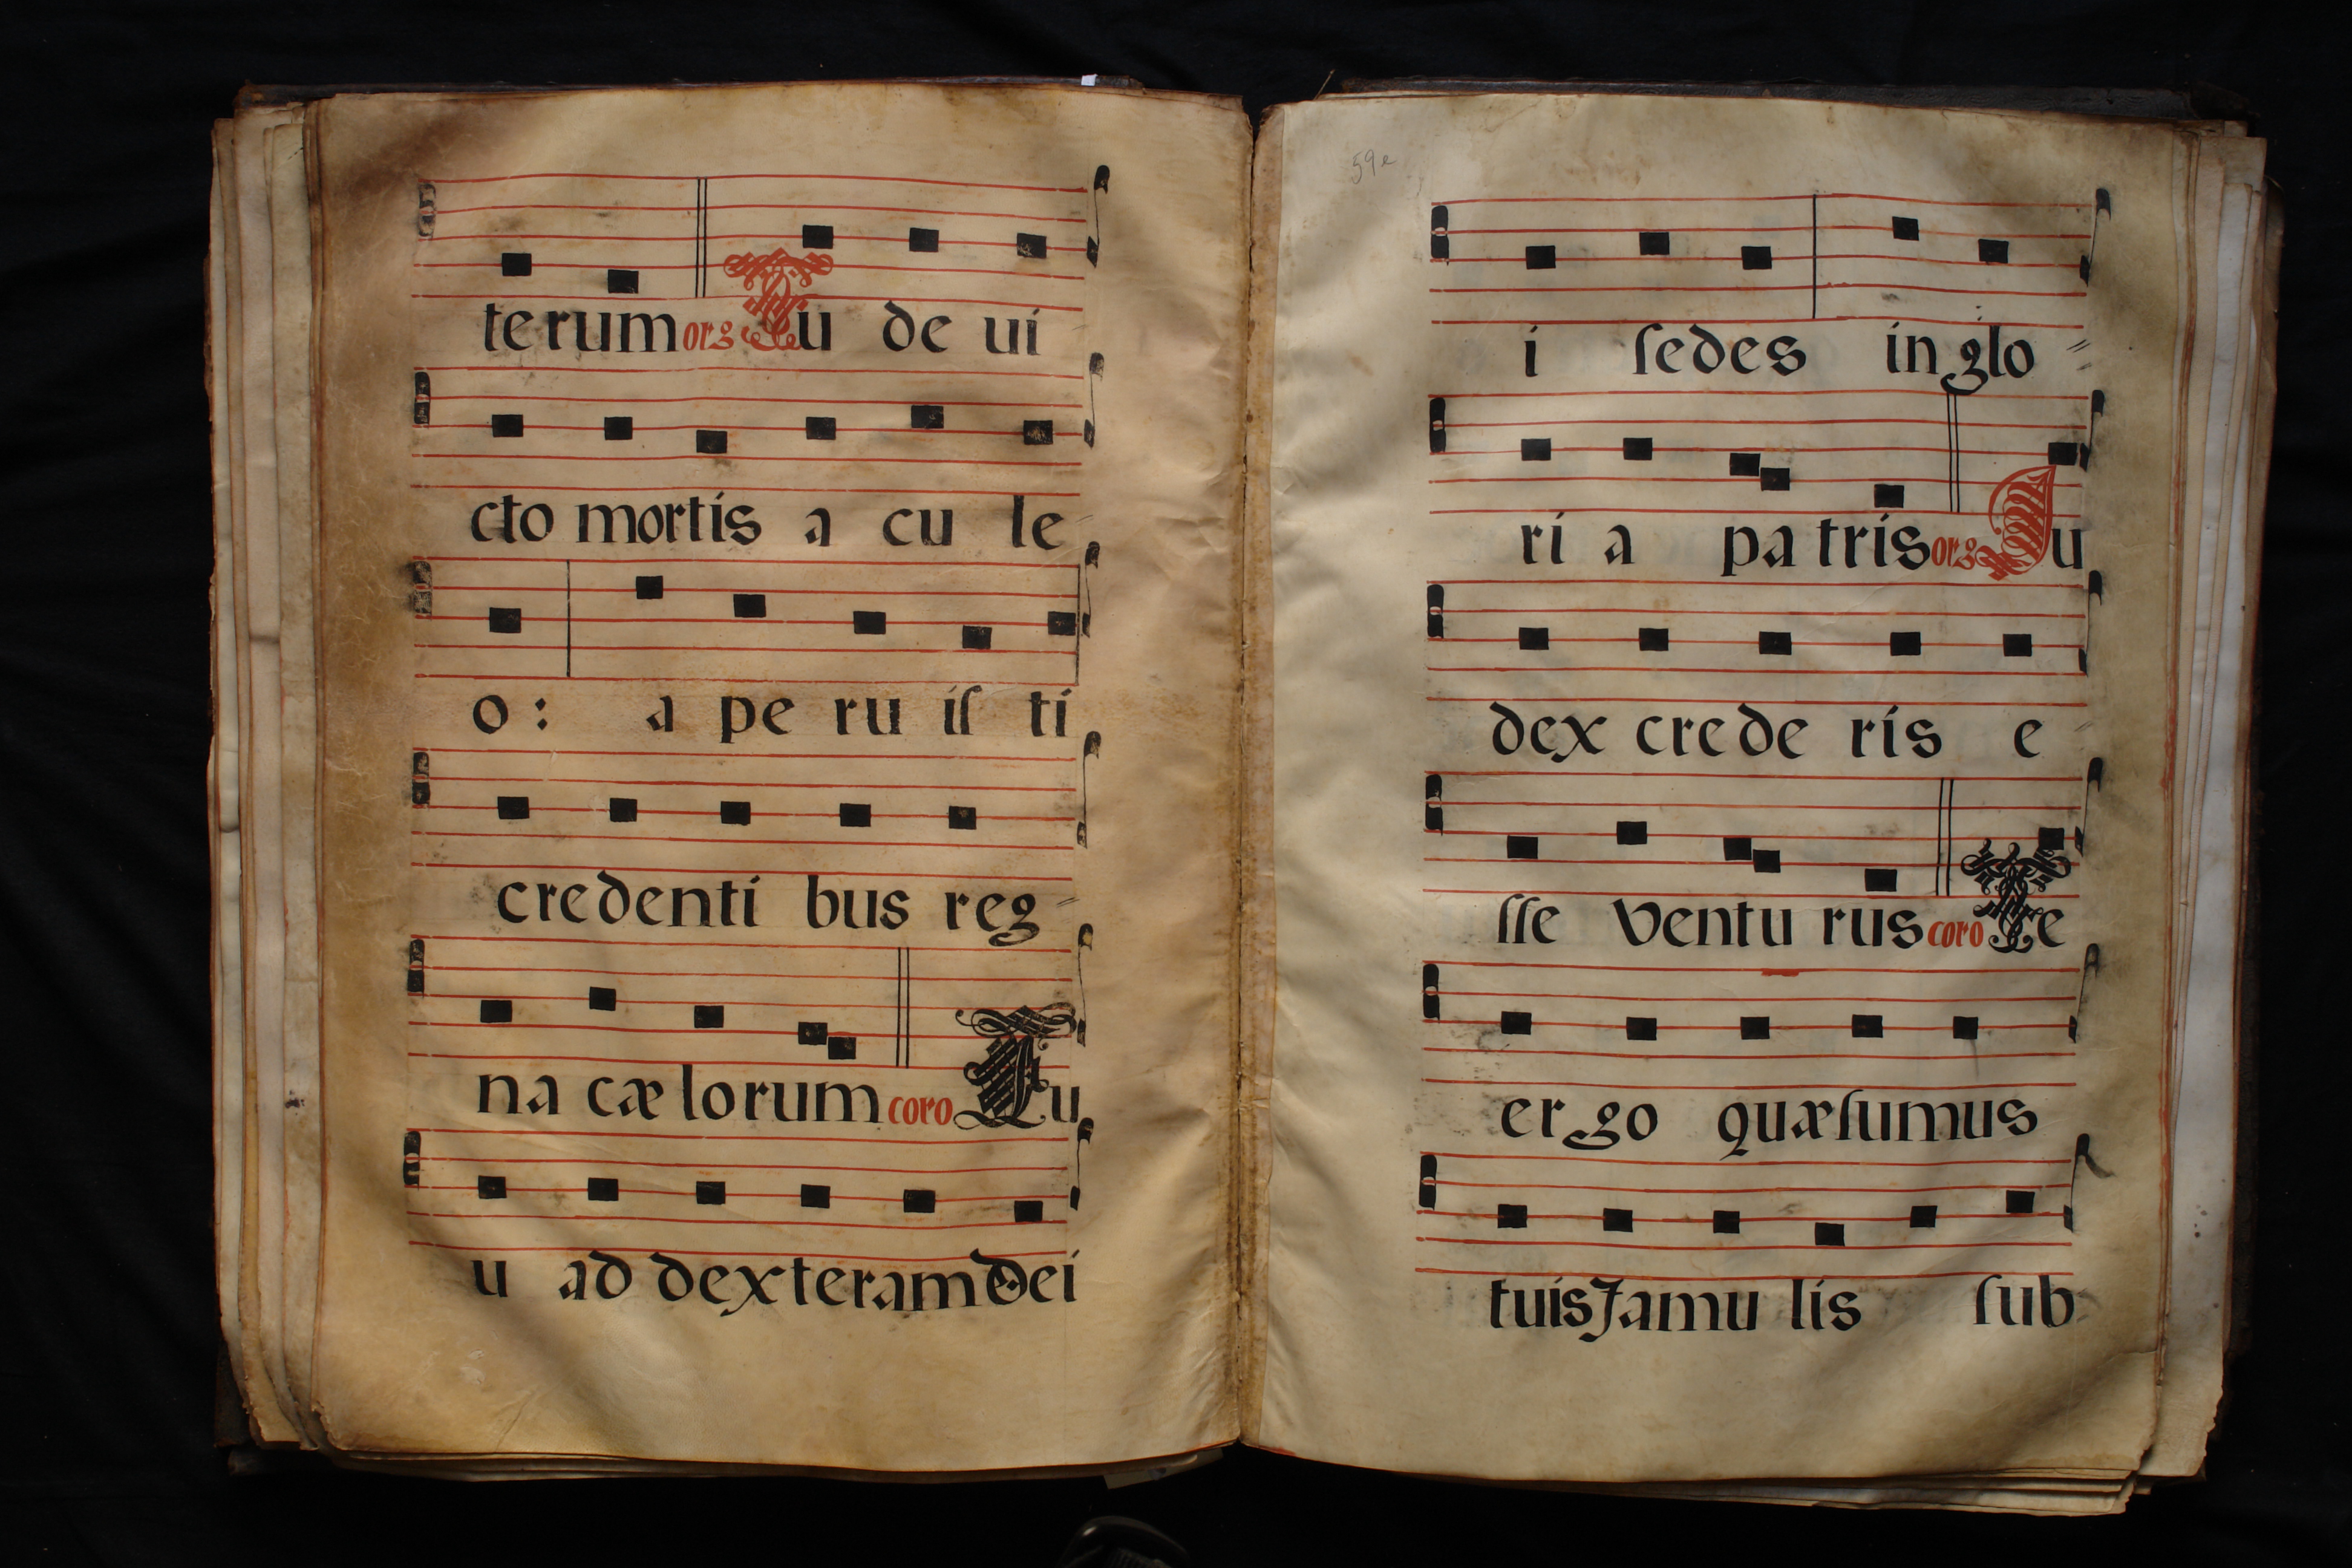 terum org Tu de ui
cto mortis a cu le
o : a pe ru iſ ti
credenti bus reg
na cæ lorum coro Tu
u ad dexteram Dei
59e
i ſedes in glo
ri a pa tris org Iu
dex crede ris e
ſſe ventu rus coro Te
ergo quæſumus
tuis famu lis ſub